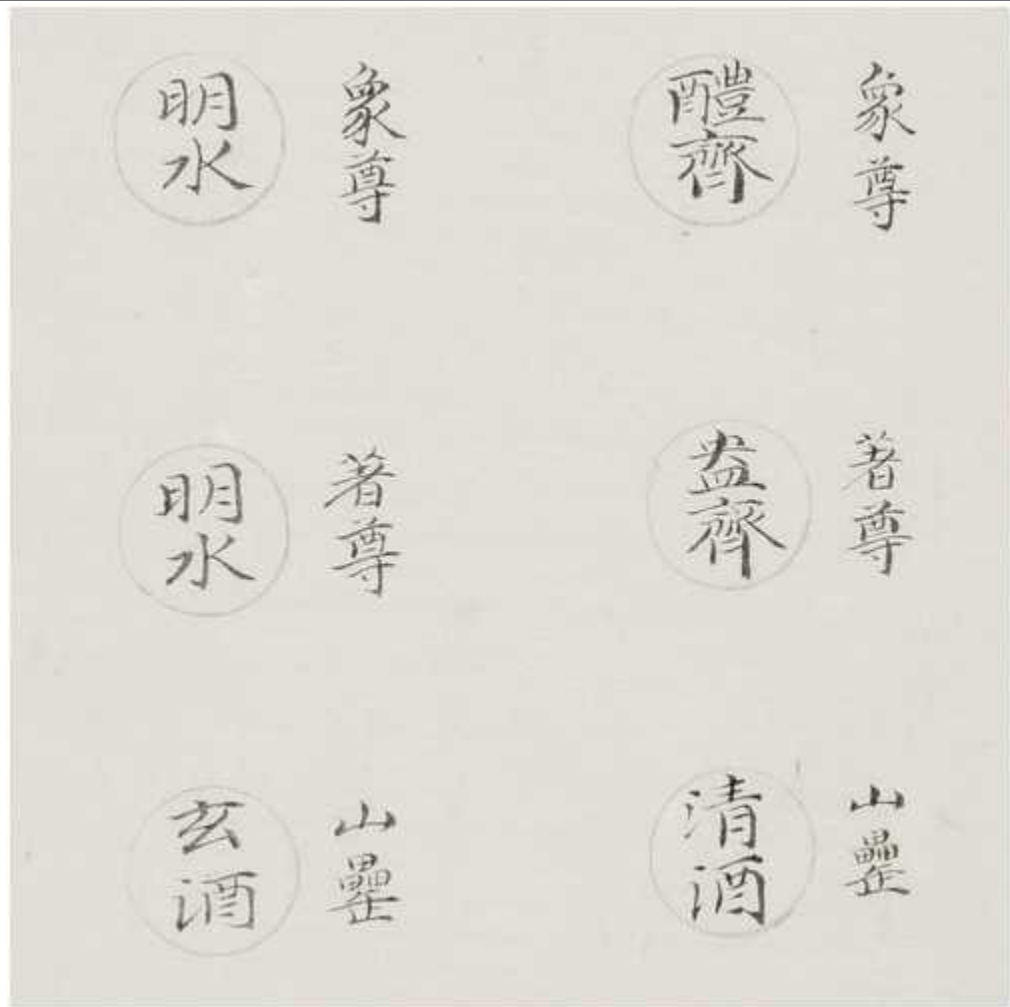 象尊
醴齊
著尊
盎齊
山罍
清酒
象尊
明水
著尊
明水
山罍
玄酒